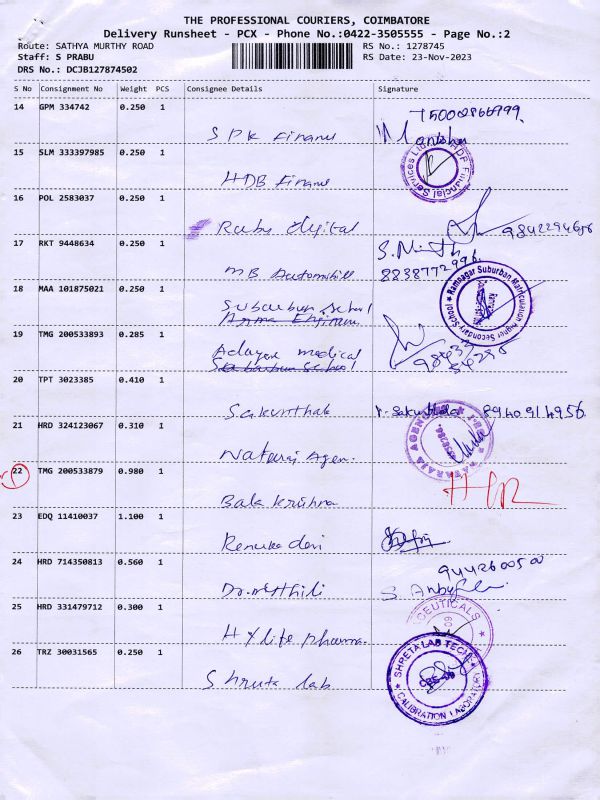 THE PROFESSIONAL COURIERS, COIMBATORE
Delivery Runsheet - PCX - Phone No.:0422-3505555 - Page No.:2
Route: SATHYA MURTHY ROAD RS No.: 1278745
Staff: S PRABU RS Date: 23-Nov-2023
DRS No.: DCJB127874502
S No Consignment No Weight PCS Consignee Details Signature
14 GPM 334742 0.250 1
SPK Finance
15 SLM 333397985 0.250 1
HDB Finance
HDB Financial Services
16 POL 2583037 0.250 1
Ruby digital
9842294656
17 RKT 9448634 0.250 1
MB Automobill
8838772996
18 MAA 101875021 0.250 1
Suburban School
Ramnagar Suburban Matriculation Higher Secondary School
19 TMG 200533893 0.285 1
Adayar medical
20 TPT 3023385 0.410 1
Sakunthala
8940914956
21 HRD 324123067 0.310 1
Nataraj Agen.
NATARAJA AGENCIES
22 TMG 200533879 0.980 1
Bala Krishna
23 EDQ 11410037 1.100 1
Renuka devi
24 HRD 714350813 0.560 1
Dr. Mythili
25 HRD 331479712 0.300 1
Hylife pharma.
26 TRZ 30031565 0.250 1
Shruta lab
SHRETA LAB TECH
CBE-09
CALIBRATION LABORATORY